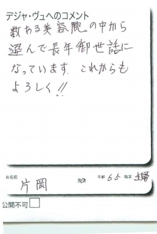 デジャ・ヴュへのコメント
数ある美容院の中から
選んで長年御世話に
なっています。これからも
よろしく!!
お名前 片岡 様 年齢 65 職業 主婦
公開不可